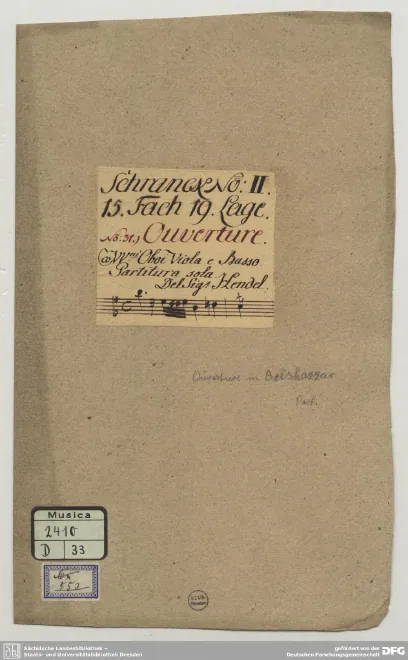 Schranck No: II.
15. Fach 19. Lage.
No: 31.) Ouverture.
Oboi Viola e Basso
Partitura sola
Del Sigr Hendel.
Ouverture in Belshazzar
Part.
Musica
2410
D 33
552
SLUB
Sächsische Landesbibliothek –
Staats- und Universitätsbibliothek Dresden
gefördert von der
Deutschen Forschungsgemeinschaft
DFG